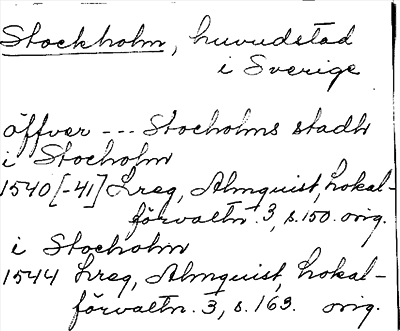 Stockholm, huvudstad
i Sverige
öffver --- Stocholms stadh
i Stocholm
1540[-41] Lreg, Almquist, Lokal-
förvaltn. 3, s. 150. orig.
i Stocholm
1544 Lreg, Almquist, Lokal-
förvaltn. 3, s. 163. orig.